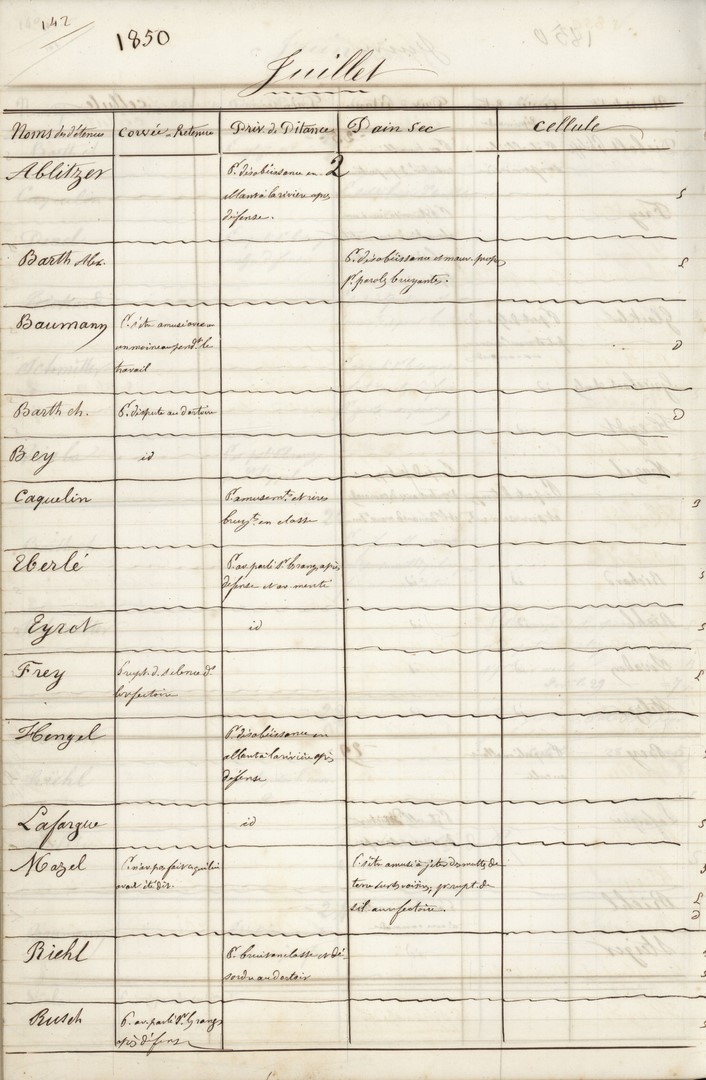 142
1850
Juillet
Noms des détenus Corvée - Retenue Priv. de Pitance Pain sec cellule
Ablitzer Pr. désobéissance en 2
allant à la rivière après
défense.
Barth Alex. Pr. désobéissance et mauv. propos
pr. parols bruyantes.
Baumann Pr. s'être amusé avec
un moineau pendt. le
travail
Barth ch. Pr. dispute au dortoire
Bey id
Caquelin Pr. amusemts. et rires
bruyts. en classe
Eberlé Pr. av. parlé Sr. après
défense et av. menti
Eyrot id
Frey rupt. d. silence ds.
le refectoire
Hengel Pr. désobéissance en
allant à la rivière après
défense
Lafargue id
Mazel Pr. n'av. pas fait ce qui lui Pr. s'être amusé à jeter des mottes de
avait été dit. terre sur les voisins, pr. rupt. de
sil. au refectoire.
Riehl Pr. bruit en classe et dé
sordre au dortoir
Rusch Pr. av. parlé
après défense